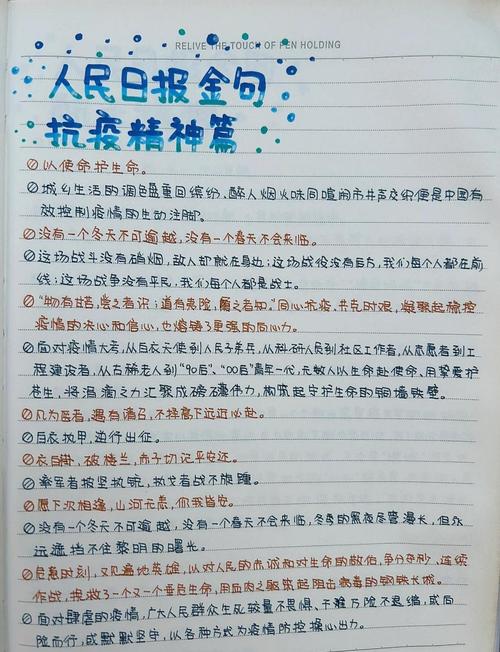 RELIVE THE TOUCH OF PEN HOLDING
人民日报金句
抗疫精神篇
以使命护生命。
城乡生活的调色盘重回缤纷,醉人烟火味同喧闹市井声交织便是中国有
效控制疫情的生动注脚。
没有一个冬天不可逾越,没有一个春天不会来临。
这场战斗没有硝烟,敌人却就在身边;这场战役没有后方,我们每个人都在前
线;这场战争没有平民,我们每个人都是战士。
"物有甘苦,尝之者识;道有夷险,履之者知。"同心抗疫、共克时艰,凝聚起稳控
疫情的决心和信心,也熔铸了更强的同心力。
面对疫情大考,从白衣天使到人民子弟兵,从科研人员到社区工作者,从志愿者到工
程建设者,从古稀老人到"90后"、"00后"青年一代,无数人以生命赴使命、用挚爱护
苍生,将涓滴之力汇聚成磅礴伟力,构筑起守护生命的铜墙铁壁。
凡为医者,遇有请召,不择高下远近必赴。
白衣执甲,逆行出征。
衣自掛,破楼兰,赤子切记平安还。
牵军者披坚执锐,执戈者战不旋踵。
愿下次相逢,山河无恙,你我皆安。
没有一个冬天不可逾越,没有一个春天不会来临,冬季的黑夜尽管漫长,但永
远遮挡不住黎明的曙光。
危急时刻,又见遍地英雄,以对人民的赤诚和对生命的敬佑,争分夺秒、连续
作战,挽救了一个又一个垂危生命,用血肉之躯筑起阻击病毒的钢铁长城。
面对肆虐的疫情,广大人民群众生死较量不畏惧、千难万险不退缩,或向
险而行,或默默坚守,以各种方式为疫情防控操心出力。